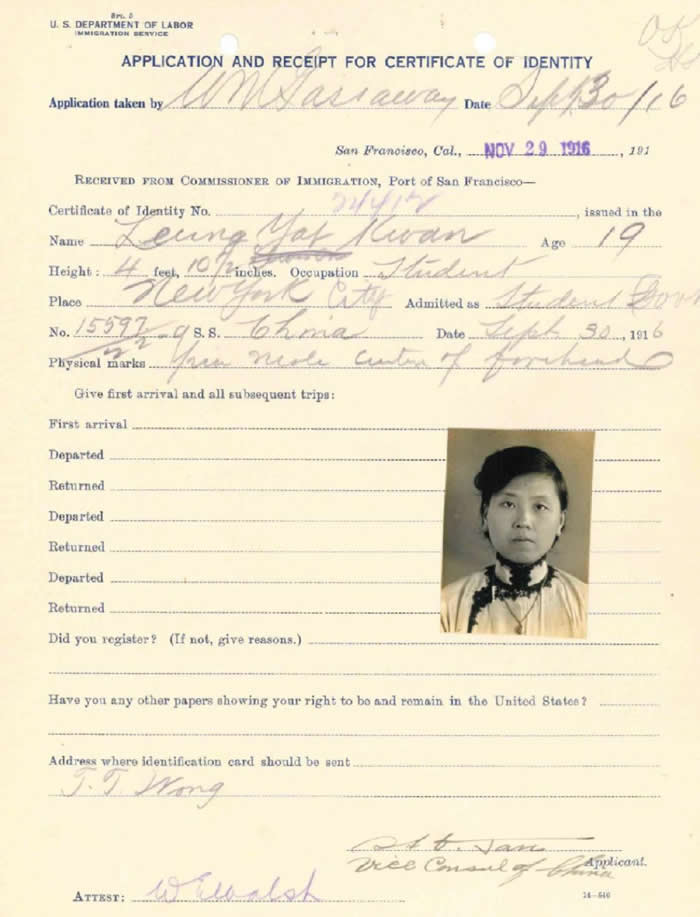 Srl. 5
U. S. DEPARTMENT OF LABOR
IMMIGRATION SERVICE
OK
APPLICATION AND RECEIPT FOR CERTIFICATE OF IDENTITY
Application taken by WM Gassaway Date Sept 30/16
San Francisco, Cal., NOV 29 1916, 191
RECEIVED FROM COMMISSIONER OF IMMIGRATION, Port of San Francisco—
Certificate of Identity No. 24412, issued in the
Name Leung Yat Kwan Age 19
Height: 4 feet, 10½ inches. Occupation Student
Place New York City Admitted as Student
No. 15597 2-9 S.S. China Date Sept. 30, 1916
Physical marks mole center of forehead
Give first arrival and all subsequent trips:
First arrival
Departed
Returned
Departed
Returned
Departed
Returned
Did you register? (If not, give reasons.)
Have you any other papers showing your right to be and remain in the United States?
Address where identification card should be sent
T. T. Wong
Applicant.
Vice Consul of China
ATTEST: W E Walsh
14—546